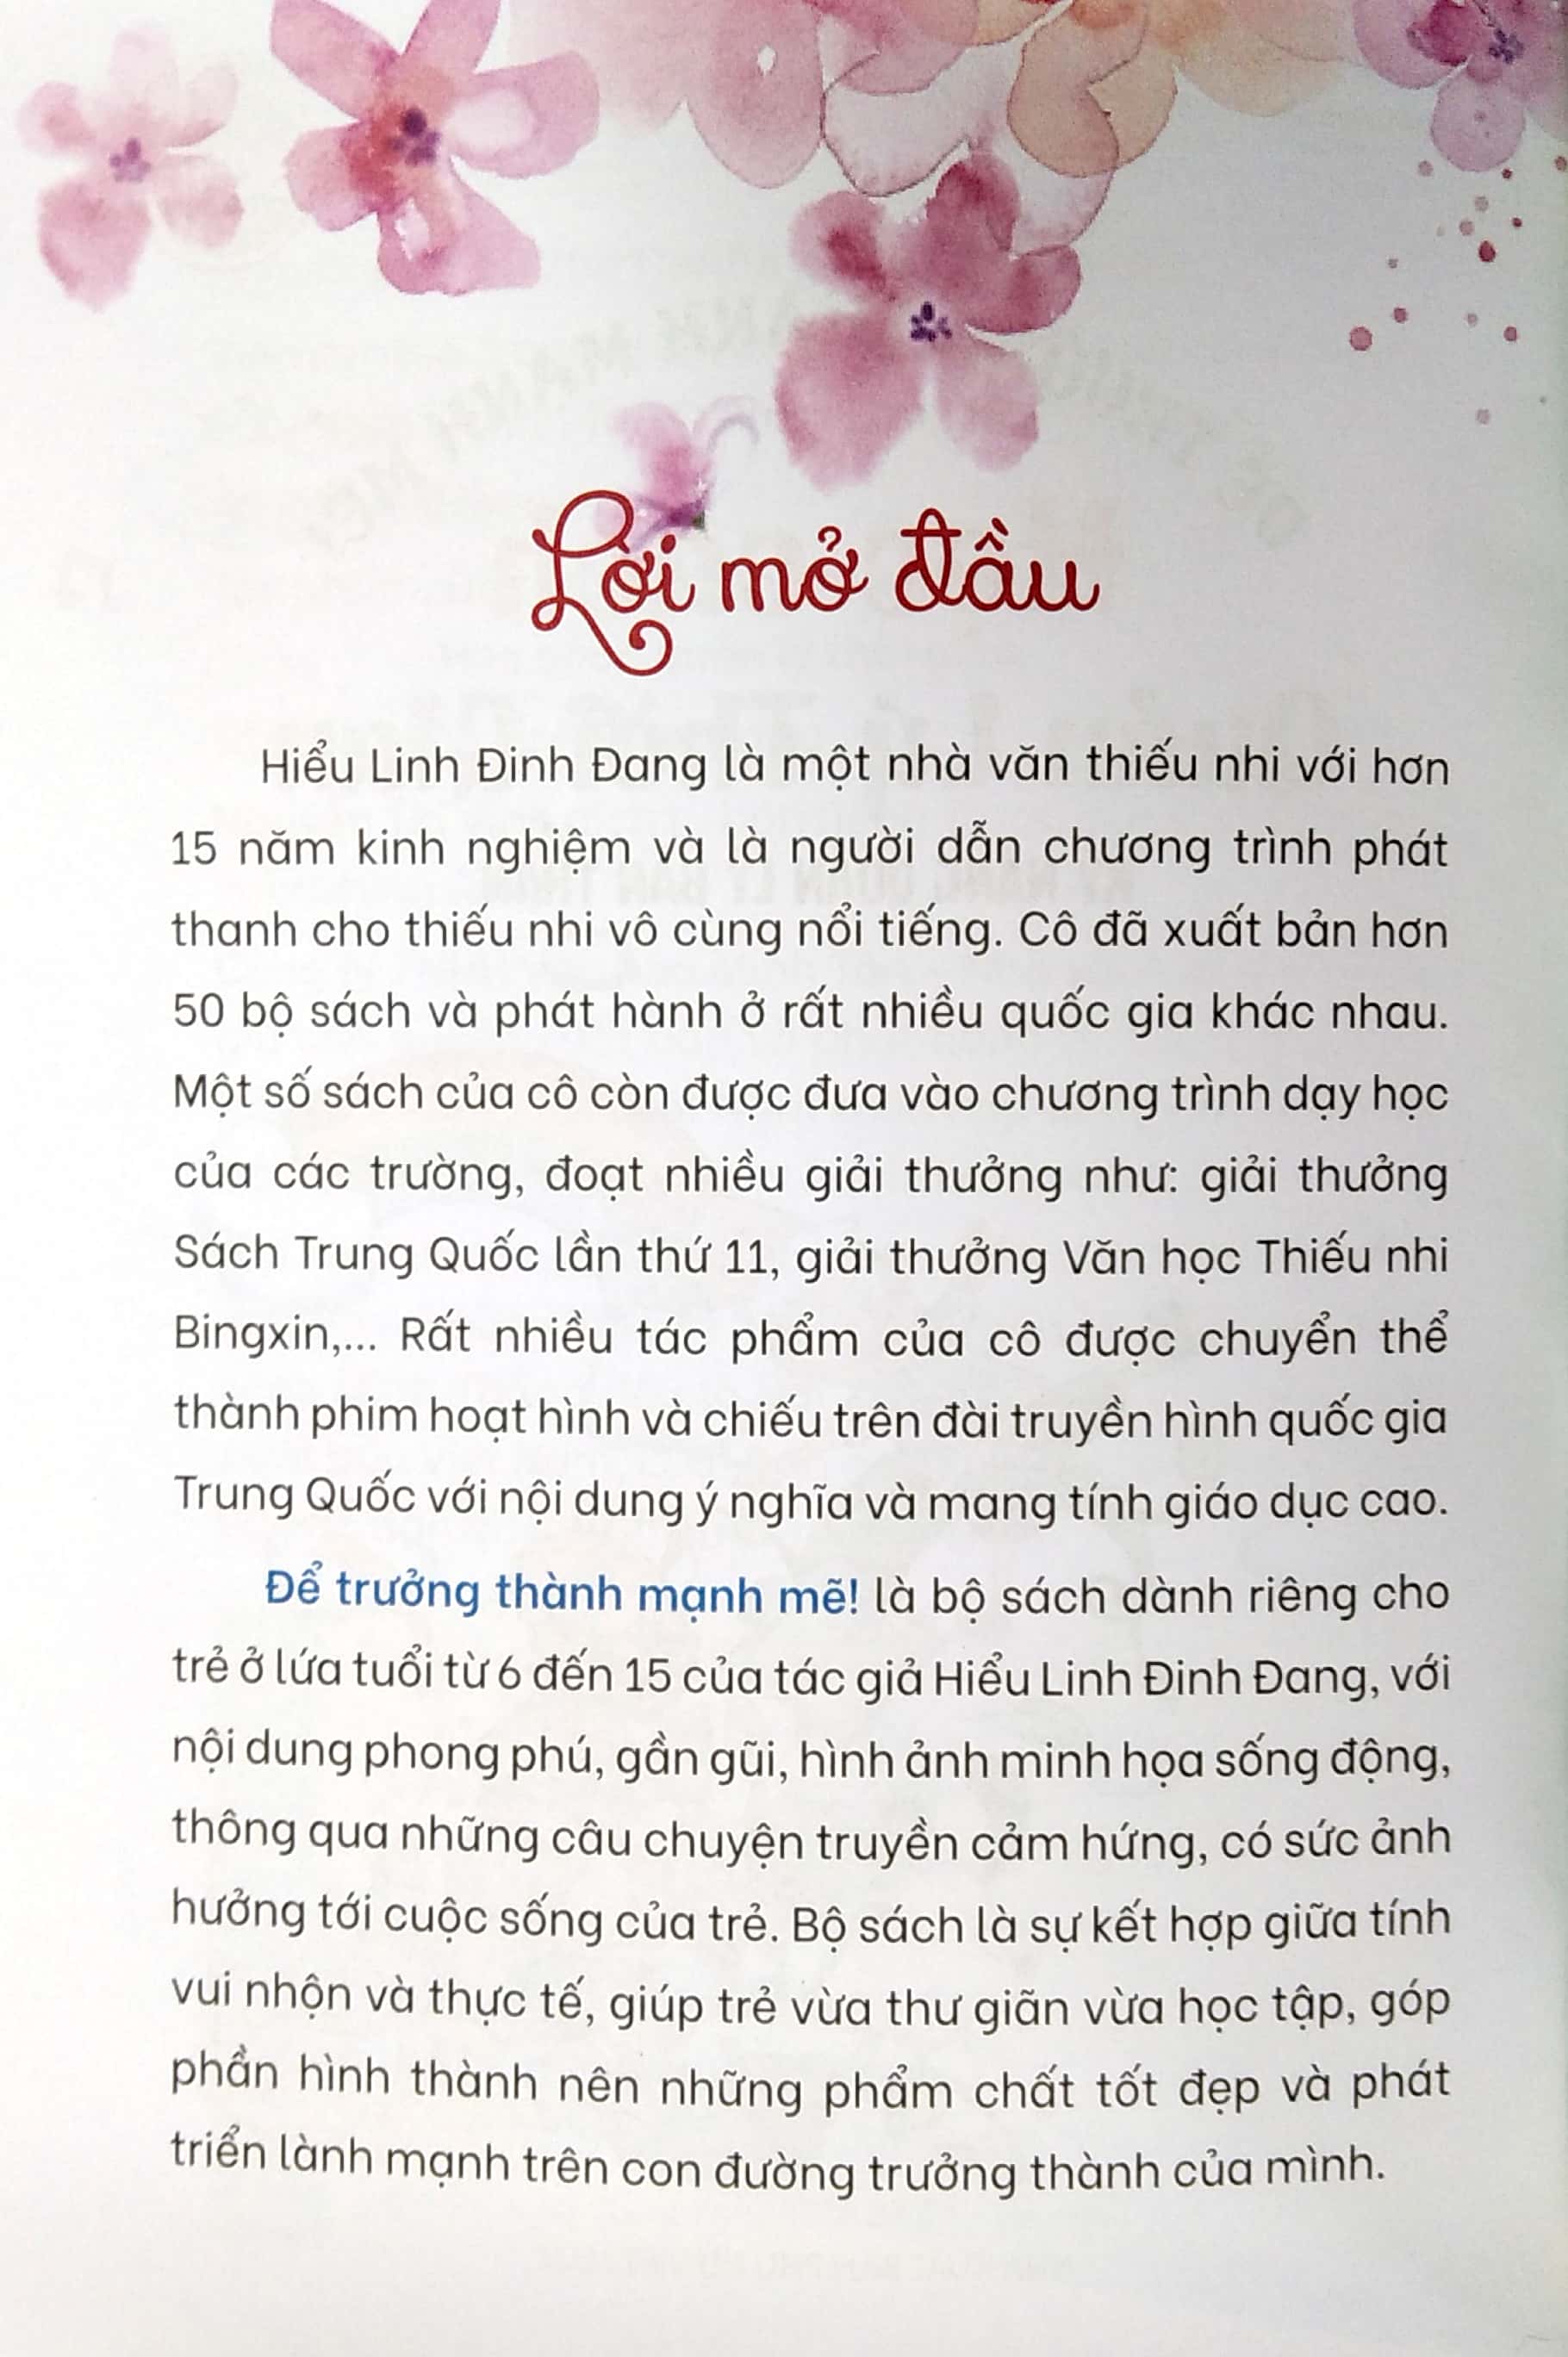 Lời mở đầu
Hiểu Linh Đinh Đang là một nhà văn thiếu nhi với hơn
15 năm kinh nghiệm và là người dẫn chương trình phát
thanh cho thiếu nhi vô cùng nổi tiếng. Cô đã xuất bản hơn
50 bộ sách và phát hành ở rất nhiều quốc gia khác nhau.
Một số sách của cô còn được đưa vào chương trình dạy học
của các trường, đoạt nhiều giải thưởng như: giải thưởng
Sách Trung Quốc lần thứ 11, giải thưởng Văn học Thiếu nhi
Bingxin,... Rất nhiều tác phẩm của cô được chuyển thể
thành phim hoạt hình và chiếu trên đài truyền hình quốc gia
Trung Quốc với nội dung ý nghĩa và mang tính giáo dục cao.
Để trưởng thành mạnh mẽ! là bộ sách dành riêng cho
trẻ ở lứa tuổi từ 6 đến 15 của tác giả Hiểu Linh Đinh Đang, với
nội dung phong phú, gần gũi, hình ảnh minh họa sống động,
thông qua những câu chuyện truyền cảm hứng, có sức ảnh
hưởng tới cuộc sống của trẻ. Bộ sách là sự kết hợp giữa tính
vui nhộn và thực tế, giúp trẻ vừa thư giãn vừa học tập, góp
phần hình thành nên những phẩm chất tốt đẹp và phát
triển lành mạnh trên con đường trưởng thành của mình.